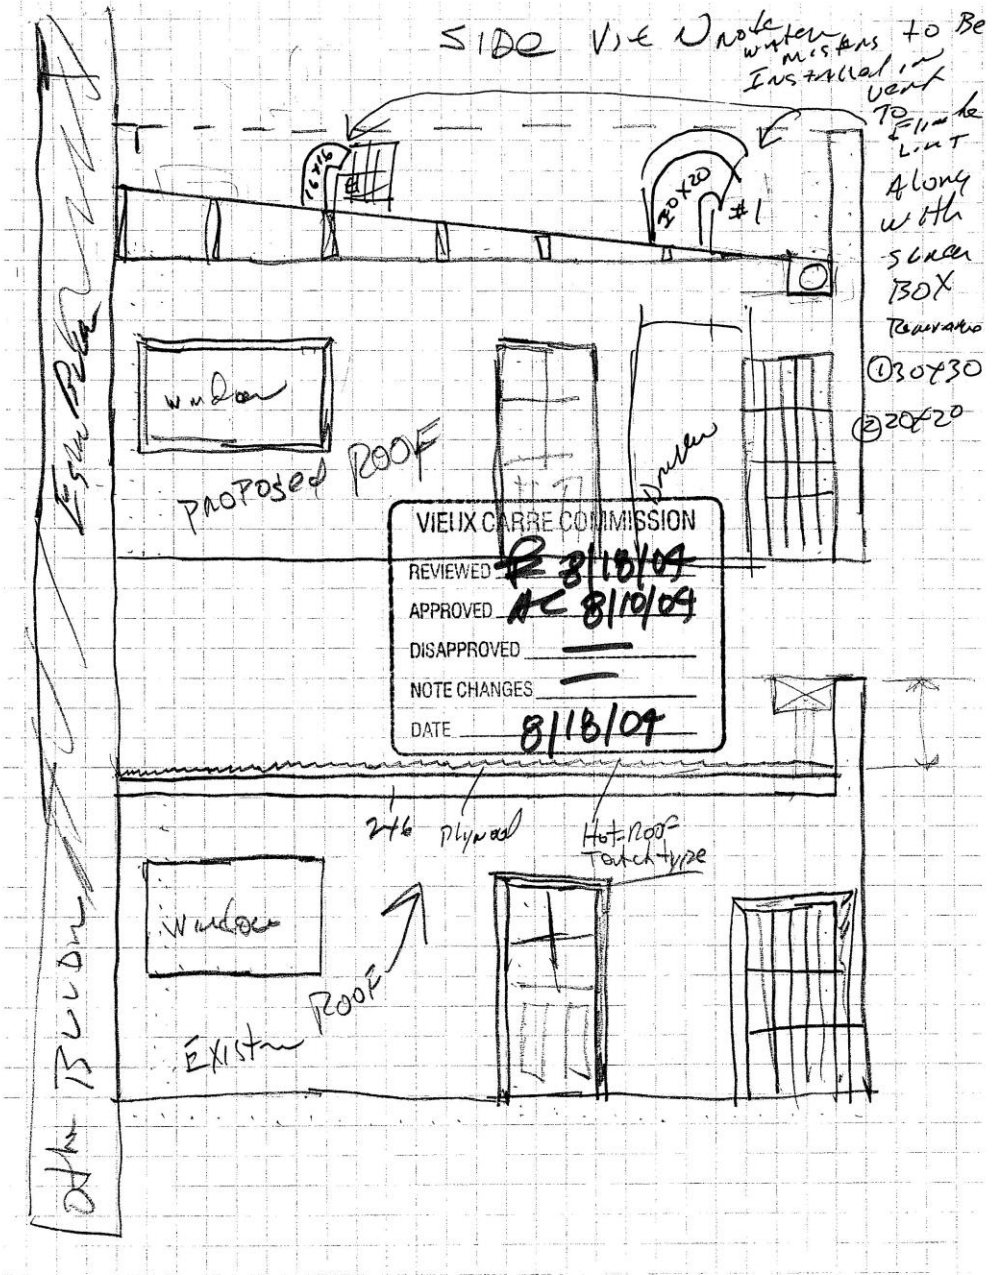 SIDE VIE
note
water
misters to Be
Installed in
vent
TO
Eliminate
LINT
Along
with
screen
BOX
① 30X30
② 20X20
16X16
20X20
#1
window
PROPOSED ROOF
VIEUX CARRE COMMISSION
REVIEWED 8/18/04
APPROVED 8/10/04
DISAPPROVED —
NOTE CHANGES —
DATE 8/18/04
2X6
Plywood
Hot-Roof
Torch type
Window
ROOF
Existin